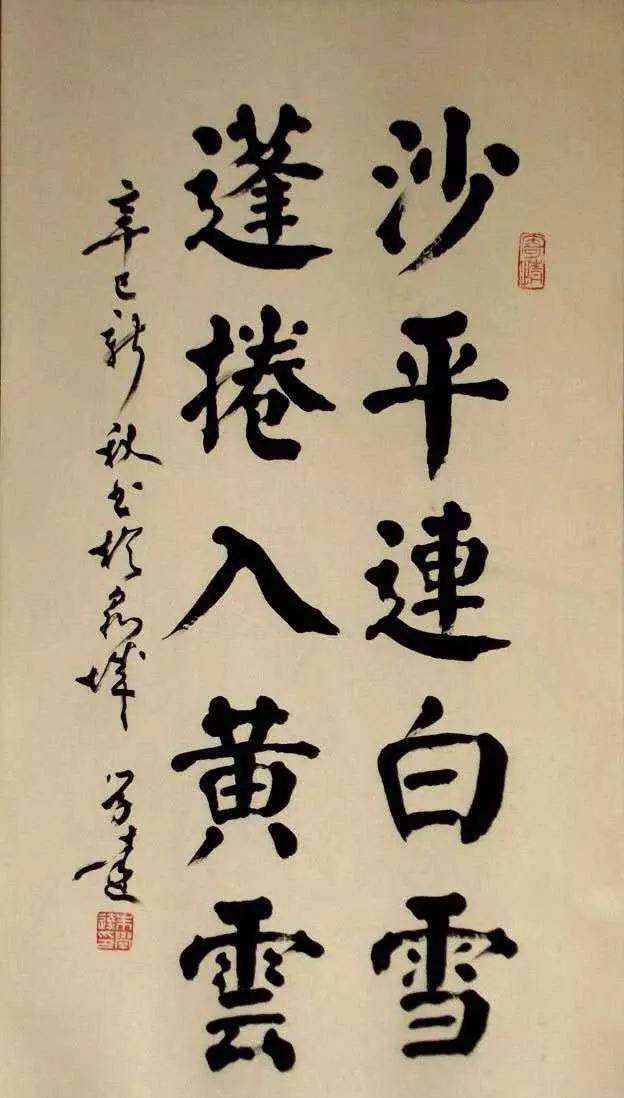 沙平連白雪
蓬捲入黃雲
辛巳新秋書於泉城 学達